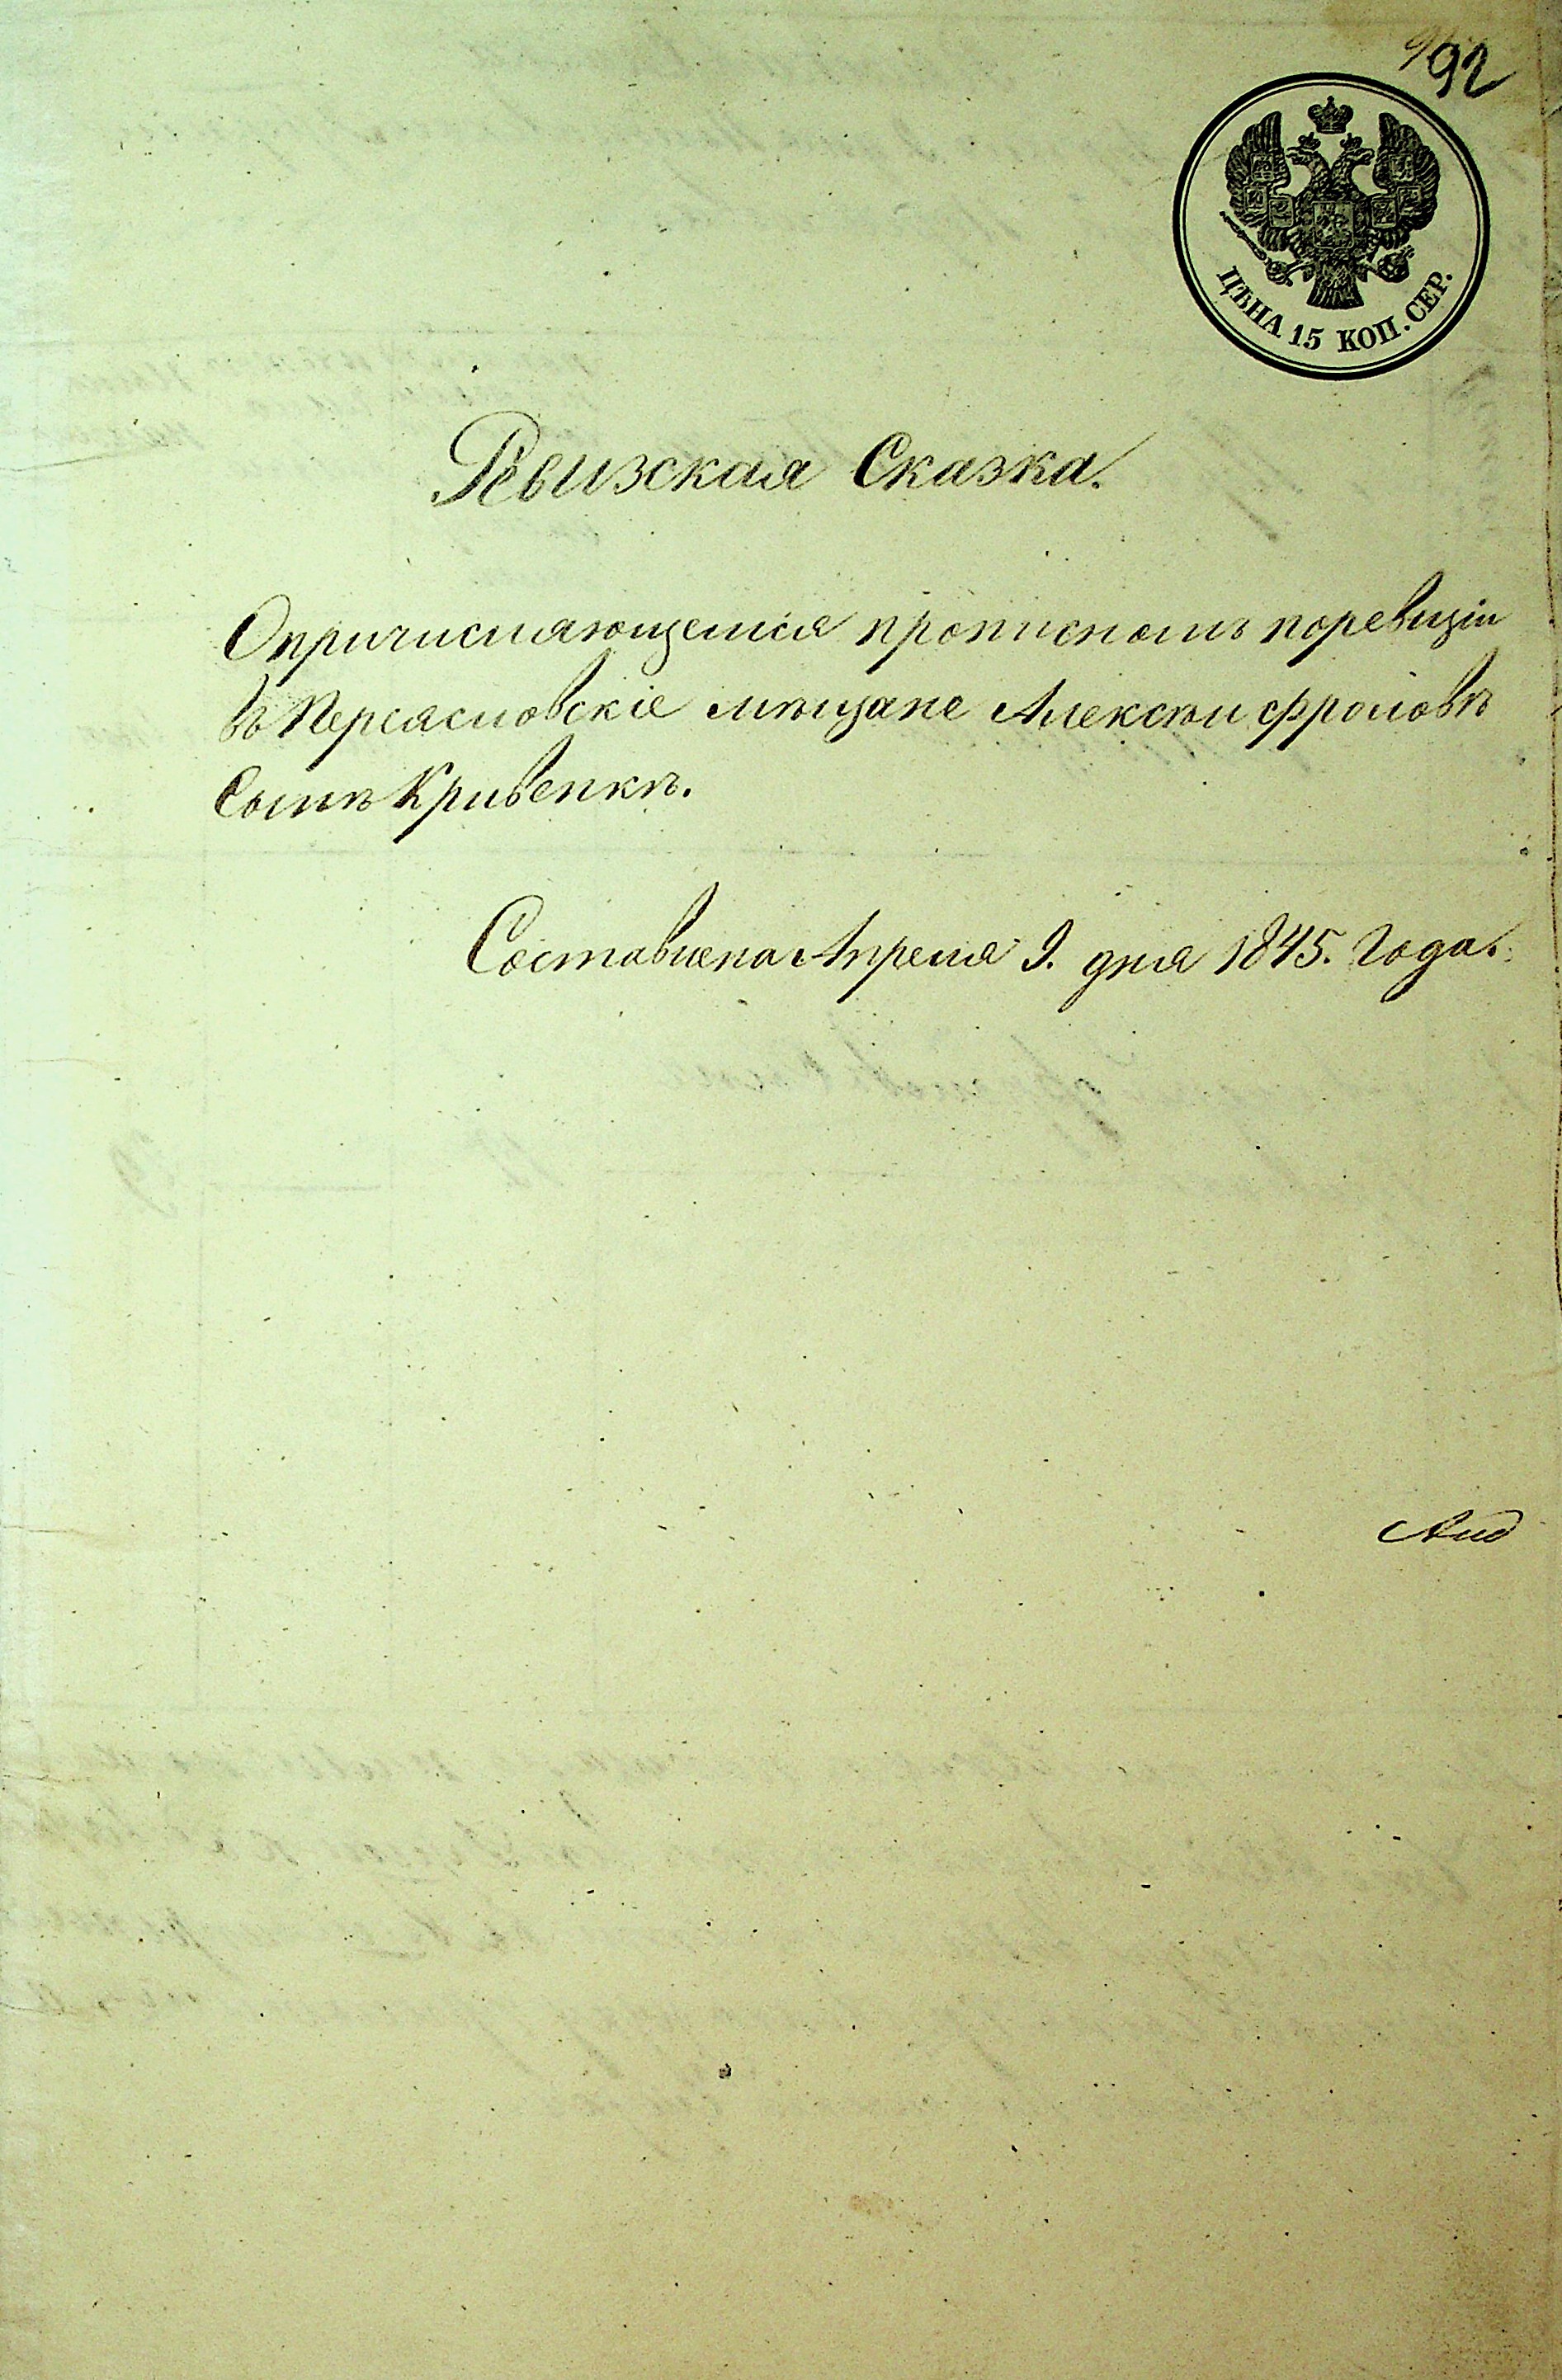 92
ЦѢНА 15 КОП. СЕР.
Ревизская Сказка.
Опричисляющемся прописномъ поревизіи
въ Переясловскіе мѣщане Алексѣи Фроловѣ
Сынѣ Кривенкѣ.
Составлена Апреля 9. дня 1845. Года.